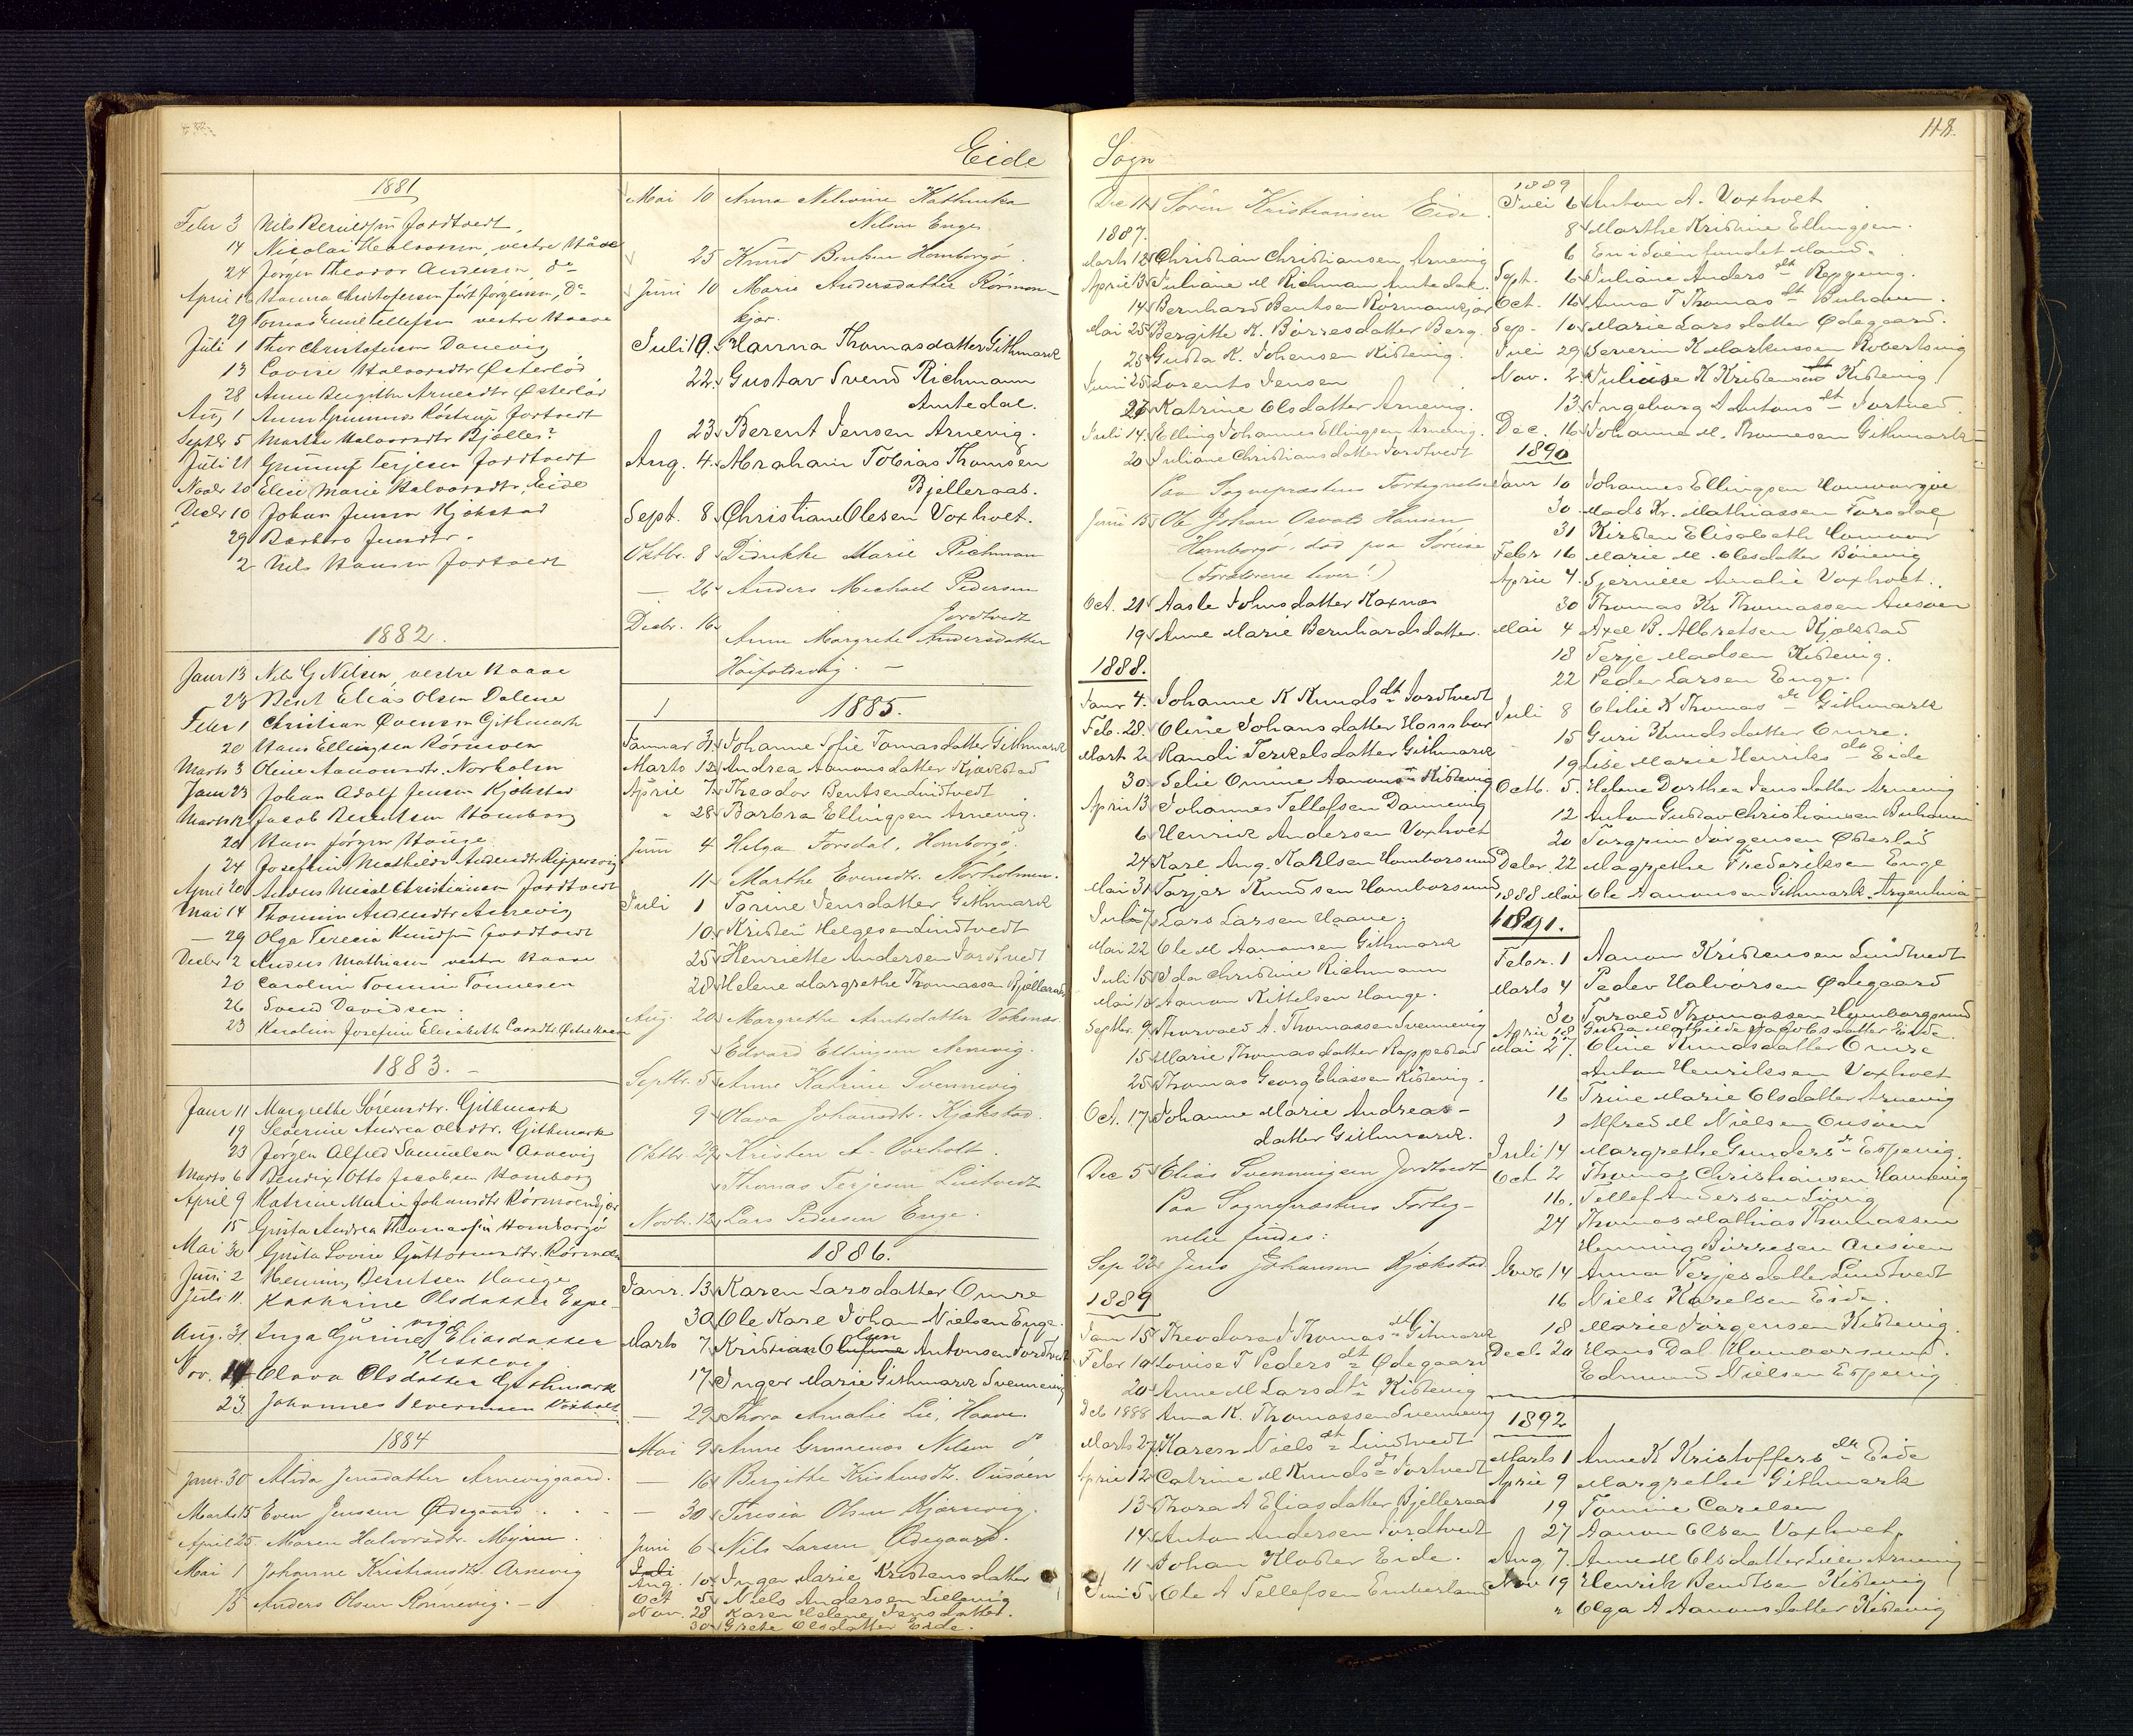 Eide
Sogn
118.
1881
Febr 3 Nils Jordtvedt
14 Nicolai Halvorsen, vestre Haave
24 Jørgen Theodor Andersen, do
April 12 Hanna Christofersen født Jørgensen, do
29 Tomas Emil Tellefsen vestre Haave
Juli 1 Thor Christofersen Danevig
13 Lovise Halvorsdtr Østerlød
28 Anne Birgitte Arnesdtr Østerlød
Aug 1 Anne Jortvedt
Septbr 5 Marthe Halvorsdtr Bjelles?
Juli 21 Terjesen Jordtvedt
Novbr 20 Elise Marie Halvorsdtr. Eide
Decbr 10 Johan Jensen Kjøkstad
29 Barbro Jensdtr.
2 Nils Hansen Jortvedt
1882.
Janr 13 Nils G Nilsen, vestre Haave
23 Elias Olsen Dalene
Febr 1 Christian Evensen Githmark
20 Hans Ellingsen Rørmoen
Marts 3 Oline Aanonsdtr. Norholm
Janr 23 Johan Adolf Jensen Kjøkstad
Marts 12 Jacob Berntsen Homborg
20 Hans Jørgen Hauge
24 Josefine Mathilde Andersdtr Rippersvig
April 20 Anders Christiansen Jordtvedt
Mai 14 Thomine Andersdtr Arnevig
— 29 Olga Teresia Jordtvedt
Decbr 2 Anders Mathiasen vestre Haave
20 Caroline Tomine Tønnesen
26 Svend Davidsen.
23 Karoline Josefine Elisabeth
1883. –
Janr 11 Margrethe Sørensdtr. Githmark
19 Severine Andrea Olsdtr. Githmark
23 Jørgen Alfred Samuelsen Arnevig
Marts 6 Bendix Otto Jacobsen Homborg
April 9 Katrine Marie Johansdtr Rørmoenkjær
15 Gusta Andrea Thomassen Homborgø
Mai 30 Gusta Lovise Guttormsdtr. Rørmoen
Juni 2 Henning Berntsen Hauge
Juli 11. Kathrine Olsdatter Espe-
vig
Aug. 31 Inga Gurine Eliasdatter
Kistevig
Nov. 14 Olava Olsdatter Githmark
23 Johannes Voxholt
1884
Janr. 30 Alida Jensdatter Arneviggaard.
Marts 15 Even Jensen Ødegaard
April 25 Maren Halvorsdtr.
Mai 1 Johanne Kristiansdtr. Arnevig
15 Anders Olsen Rønnevig. –
Mai 10 Anna Nilsine Kathinka
Nilsen Enge
25 Knud Berntsen Homborgø.
Juni 10 Marie Andersdatter Rørmoen-
kjær.
Juli 19. Hanna Thomasdatter Githmark
22. Gustav Svend Richmann
Amtedal.
23. Berent Jensen Arnevig.
Aug. 4. Abraham Tobias Thomsen
Bjelleraas.
Sept. 8. Christiane Olesen Voxholt.
Oktbr. 8 Didrikke Marie Richman
— 26 Anders Michael Pedersen
Jordtvedt
Decbr. 16 Anne Margrete Andersdatter
Høifoldsvig. –
1885.
Januar 31. Johanne Sofie Tomasdatter Githmark
Marts 12. Andrea Aanonsdatter Kjøkstad
April 7. Theodor Bentsen Lindtvedt
" 28. Barbra Ellingsen Arnevig.
Juni 4 Helga Torsdal, Homborgø.
11 Marthe Evensdtr. Norholmen.
Juli 1 Tomine Jensdatter Githmark
10. Kristen Helgesen Lindtvedt
25 Henriette Andersen Jordtvedt
28 Helene Margrethe Thomassen Bjelleraas
Aug. 20 Margrethe Arntsdatter Voksnæs.
Edvard Ellingsen Arnevig.
Septbr. 5 Anne Katrine Svennevig
9 Olava Johansdtr. Kjøkstad.
Oktbr. 29 Kristen A. Voxholt.
Thomas Terjesen Lintvedt
Novbr. 12 Lars Pedersen Enge.
1886.
Janr. 13. Karen Larsdatter Omre
30 Ole Karl Johan Nielsen Enge.
Marts 7 Kristian Olsen Antonsen Jordtvedt
17 Inger Marie Githmark Svennevig
— 29 Thora Amalie Lie, Haave.
Mai 9 Anne Gunnenas Nilsen do
16 Birgithe Kristensdtr. Ousøen
— 30 Teresia Olsen Kjærsvig.
Juni 6 Nils Larsen, Ødegaard.
Juli
Aug. 10 Inger Marie Kristensdatter
Oct 5 Niels Andersen Lillevig
Nov. 28 Karen Helene Jensdatter.
30 Grete Olesdatter Eide.
Dec 11 Søren Kristiansen Eide.
1887.
Marts 12 Christian Christiansen Arnevig
April 13 Juliane M Richman Amtedal.
14 Bernhard Bentsen Rørmankjær
Mai 25 Bergitte K. Børresdatter Berg.
25 Gusta K. Johensen Kistevig.
Juni 25 Lorents Jensen
26 Katrine Olsdatter Arnevig.
Juli 14. Elling Johannes Ellingsen Arnevig.
20 Juliane Christiansdatter Jordtvedt
Paa Sognepræstens Fortegnelse
Juni 15 Ole Johan Osvald Hansen,
Homborgø, død paa Soreise
(Forældrene lever!)
Oct. 21 Aasle Johnsdatter Koxnæs
19 Anne Marie Bernhardsdatter.
1888.
Janr 4. Johanne K Knudsdt Jordtvedt
Feb. 28. Oline Johansdatter Hombor
Mart 2 Randi Terkelsdatter Githmark
30 Selie Omine Aanons Kistevig
April 13 Johannes Tellefsen Dannevig
6 Henrik Andersen Voxholt
24 Karl Aug. Kahlsen Homborsund
Mai 31 Tarjer Knudsen Homborsund
Juli 7 Lars Larsen Haave.
Mai 22 Ole M Aanonsen Githmark
Juli 15 Ida Christine Richmann
Mai 10 Aanon Kittelsen Hauge.
Septbr. 9. Thorvald A. Thomassen Svennevig
15 Marie Thomasdatter Røppestad
25 Thomas Georg Eliassen Kistevig.
Oct. 17 Johanne Marie Andreas-
datter Githmark.
Dec 5 Elias Svenningsen Jordtvedt
Paa Sognepræstens Forteg-
nelse findes:
Sep 22 Jens Johansen Kjøkstad
1889
Jan 15 Theodora J Thomasdt Githmark
Febr 10 Lovise T Pedersdt Ødegaard
20 Anne M Larsdt Kistevig
Deb 1888 Anna K. Thomassen Svennevig
Marts 27 Karen Nielsdt Lindtvedt
April 12 Catrine M Knudsdt Jortvedt
13 Thora A Eliasdatter Bjelleraas
14 Anton Andersen Jordtvedt
11 Johan Kloster Eide.
Juni 5 Ole A Tellefsen Emberland
1889
Juli 6 Anton A. Voxholt
8 Marthe Kristine Ellingsen.
6 En i Søen fundet Mand.
Sept. 6 Juliane Andersdt Repgevig.
Oct. 16 Anna T Thomasdt Buhaven.
Sep. 10 Marie Larsdatter Ødegaard.
Juli 29 Severin K Markussen Robertsvig
Nov. 2 Juliane K Kristensdt Kistevig
13 Ingeborg A Antonsdt Jortved
Dec. 16 Johanne M. Thomesen Githmark
1890
Janr 10 Johannes Ellingsen Homborgøe
30 Mads Kr. Mathiassen Torsdal
31 Kirsten Elisabeth Homvor
Febr 16 Marie M Olesdatter Bøievig
April 4. Gjernille Amalie Voxholt.
30 Thomas Kr Thomassen Auesøen
Mai 4 Axel B. Albretsen Kjøkstad
18 Terje Madsen Kistevig.
22 Peder Larsen Enge.
Juli 8 Cilie K Thomasdt Githmark
15 Guri Knudsdatter Omre.
19 Lise Marie Henriksdt Eide
Octb. 5. Helene Dorthea Jensdatter Arnevig
12 Anton Gustav Christiansen Buhaven
20 Torgrim Jørgensen Østerlød
Decbr. 22 Magrethe Frederiksen Enge
1888 Mai Ole Aanonsen Githmark Argentinia
1891.
Febr. 1 Aanon Kristensen Lindtvedt
Marts 4 Peder Halvorsen Ødegaard
30 Torvald Thomassen Homborgsund
April 18 Gusta Mathilde Jacobsdatter Eide
Mai 27. Oline Knudsdatter Omre
Anton Henriksen Voxholt
16 Trine Marie Olsdatter Arnevig
1 Alfred M Nielsen Ousøen
Juli 14 Margrethe Gundersdt Espevig.
Oct 2 Thomas Christiansen Homevig
16. Tellef Andersen Liavig
24 Thomas Mathias Thomassen
Henning Børresen Auesøen
Novb 14 Anna Terjesdatter Lindtvedt
16 Niels Karelsen Eide.
18 Marie Jørgensen Kistevig.
Decb. 20 Hans Dal Homborsund.
Edmund Nielsen Espevig
1892
Marts 1 Anne K Kristoffersdt Eide
April 9 Margrethe Githmark
19 Tomine Carelsen
27 Aanon Olsen Voxholt,
Aug 7. Anne M Olsdatter Lille Arnevig
Nov 19 Henrik Bendtsen Kistevig
" Olga A Aanonsdatter Kistevig